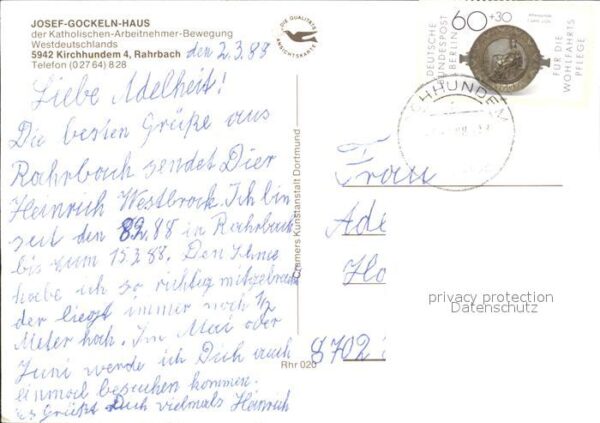 JOSEF-GOCKELN-HAUS
der Katholischen-Arbeitnehmer-Bewegung
Westdeutschlands
5942 Kirchhundem 4, Rahrbach
Telefon (02764) 828
den 2.3.88
Liebe Adelheit!
Die besten Grüße aus
Rahrbach sendet Dier
Heinrich Westbrock. Ich bin
seit den 82.88 in Rahrbach
bis zum 15.3.88. Den Schnee
habe ich so richtig mitgebracht
der liegt immer noch 1/2
Meter hoch. Im Mai oder
Juni werde ich Dich auch
einmal besuchen kommen.
Es Grüßt Dich vielmals Heinrich
DIE QUALITÄTS
ANSICHTSKARTE
Cramers Kunstanstalt Dortmund
Rhr 020
DEUTSCHE
BUNDESPOST
BERLIN
60+30
FÜR DIE
WOHLFAHRTS
PFLEGE
CHHUNDEM
Frau
Ade
Ho
privacy protection
Datenschutz
8702